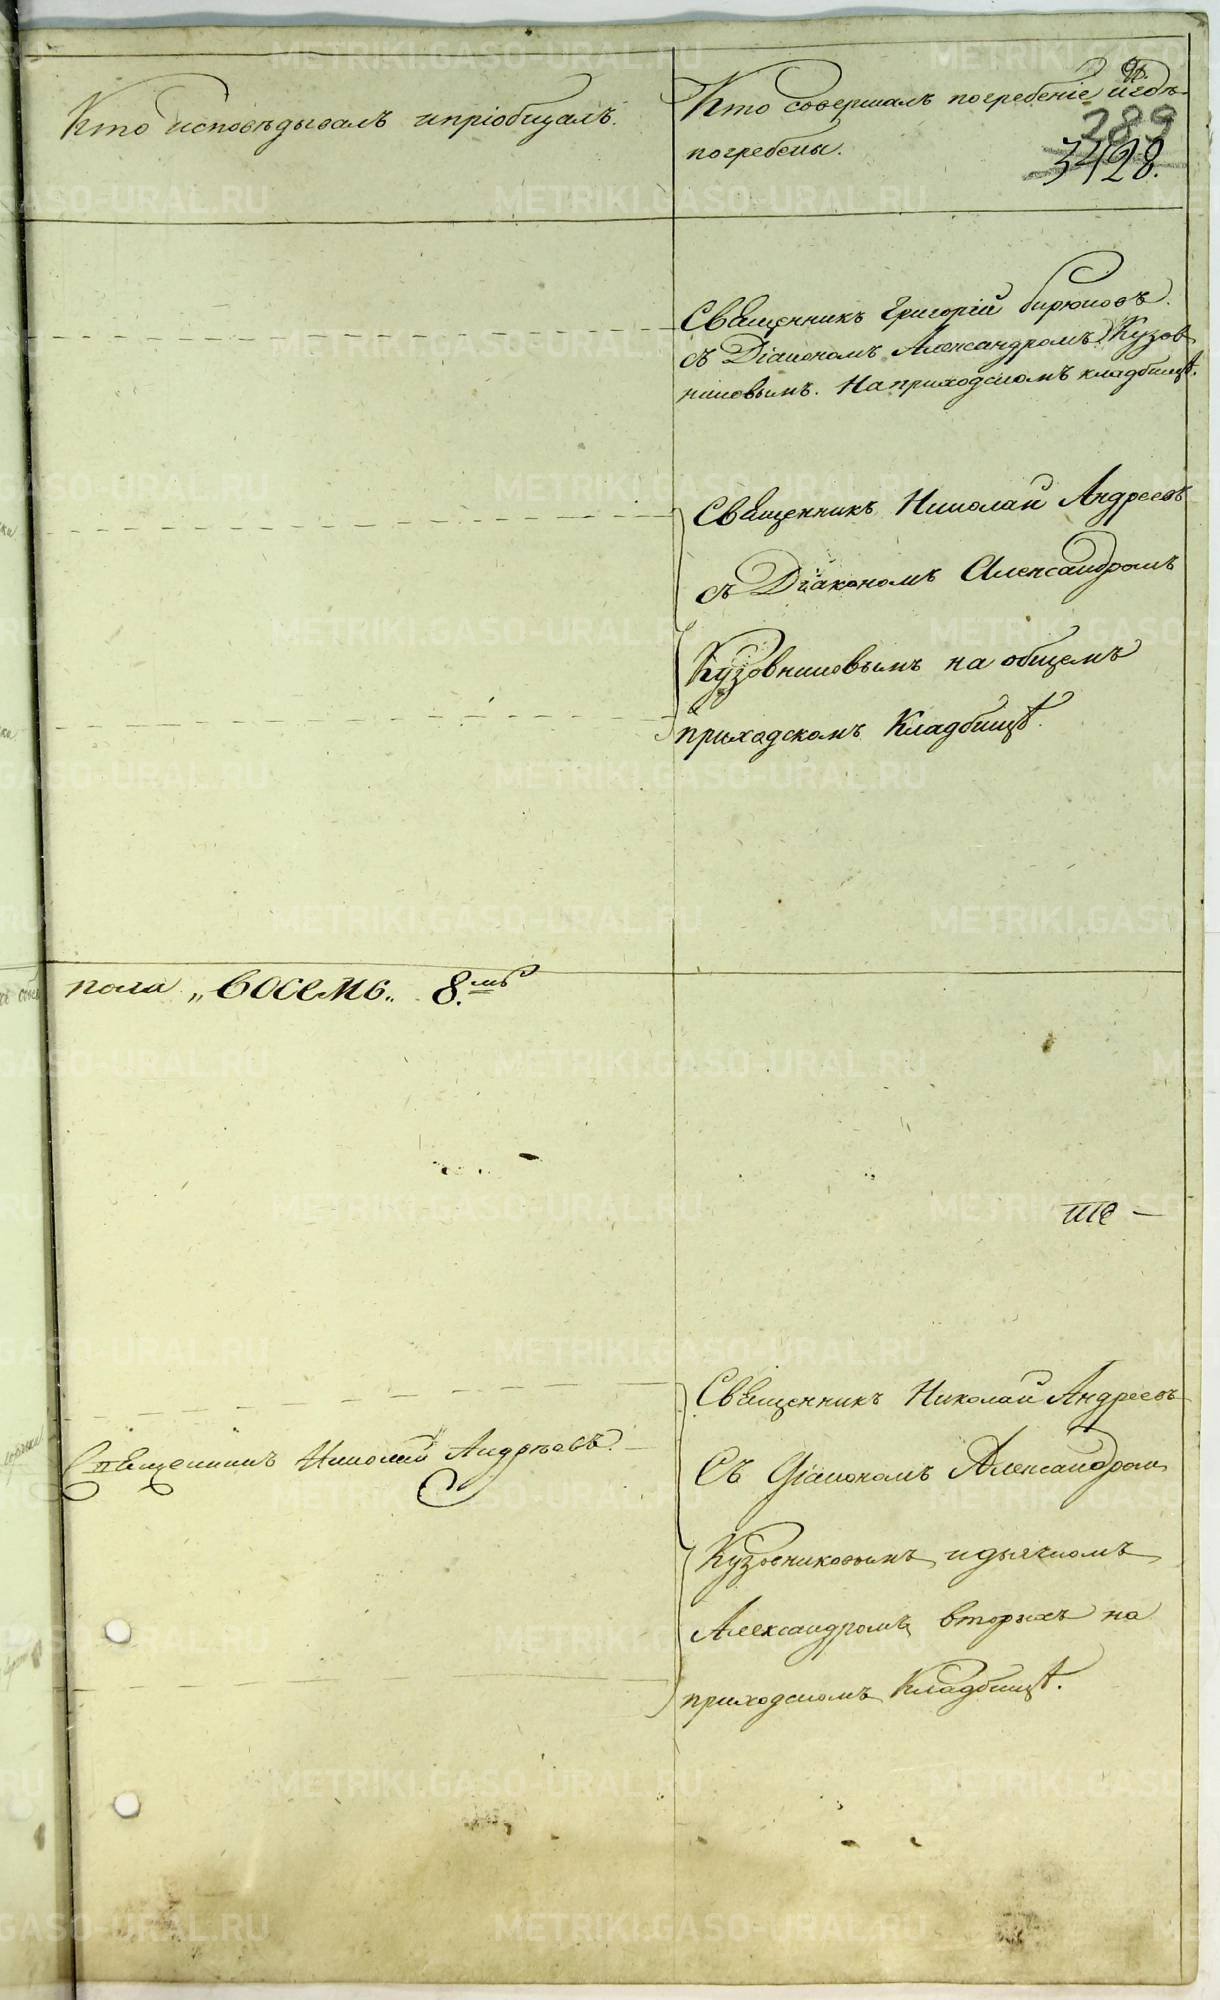 Кто исповѣдывалъ ипріобщалъ.
Кто совершалъ погребеніе игдѣ
погребены.
289
3428.
Священникъ Григорій Бирюковъ.
съ Діакономъ Александромъ Кузов
никовымъ. На приходскомъ кладбищѣ.
Священникъ Николай Андреевъ
съ Діакономъ Александромъ
Кузовниковымъ на общемъ
приходскомъ Кладбищѣ.
пола „восемь„ 8.мь
Священникъ Николай Андрѣевъ.
Священникъ Николай Андреевъ
Съ Діакономъ Александром
Кузовниковымъ идьячкомъ
Александромъ вторыхъ на
приходскомъ Кладбищѣ.
METRIKI.GASO-URAL.RU